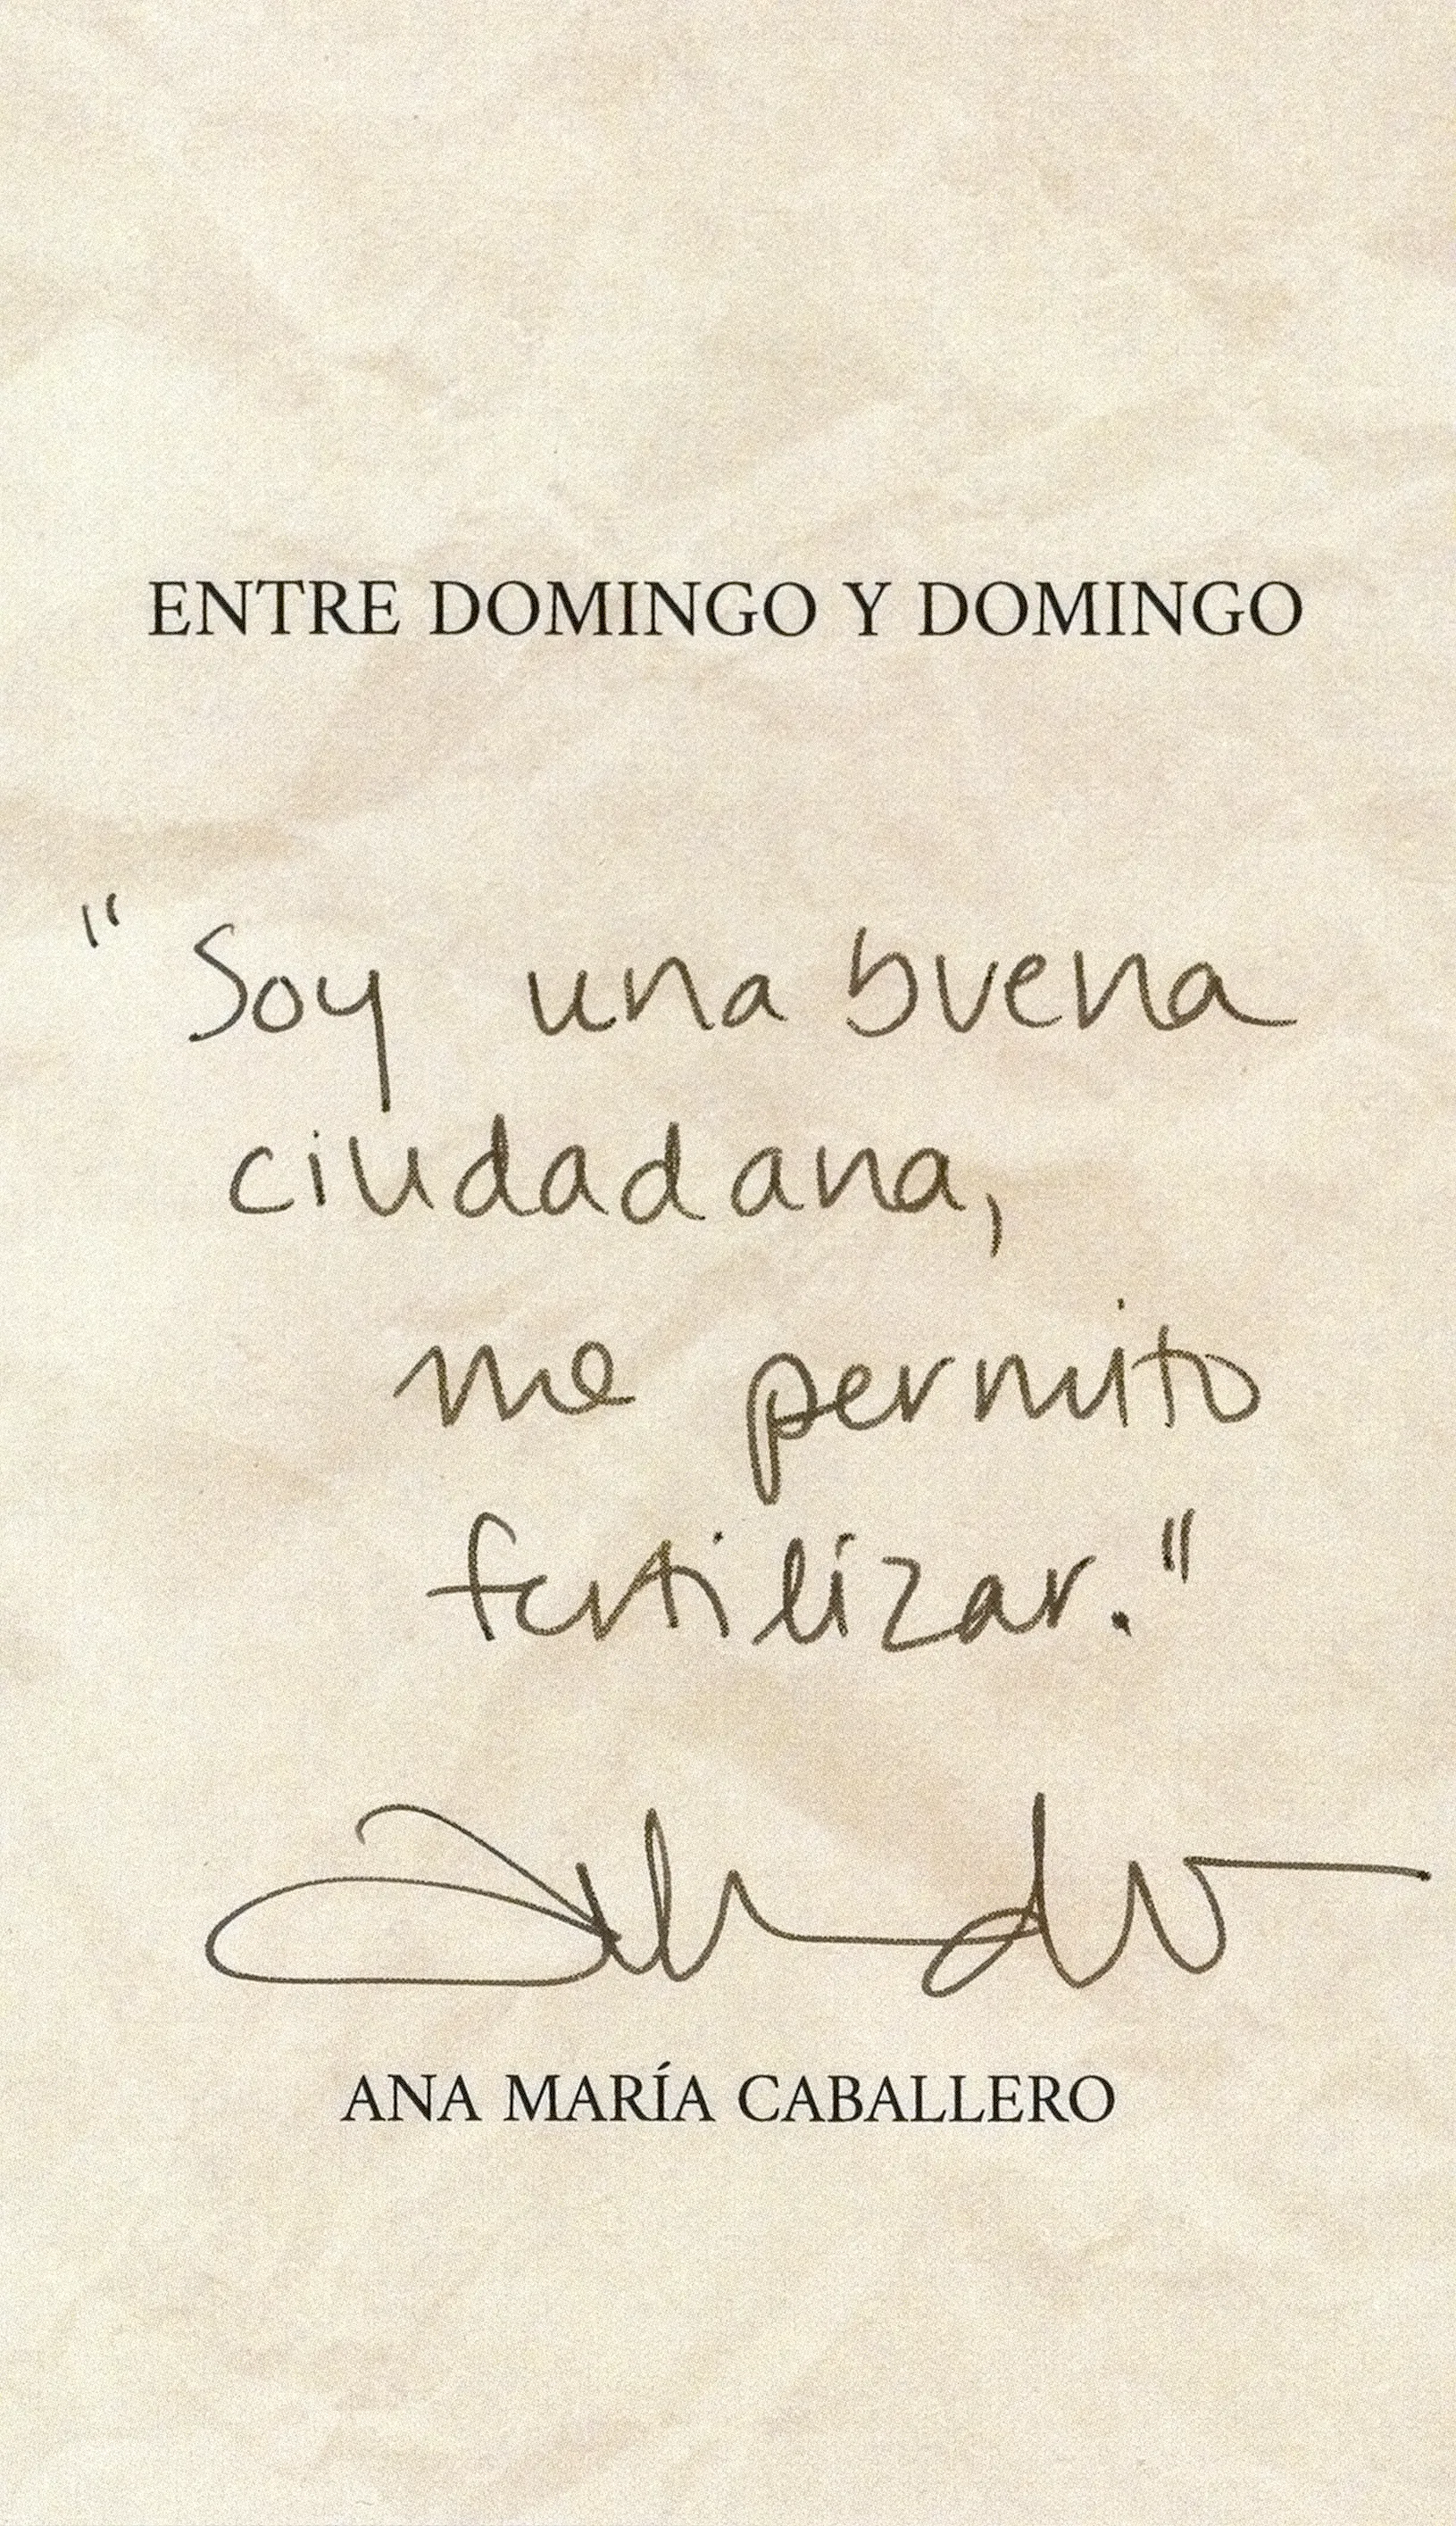 ENTRE DOMINGO Y DOMINGO
"Soy una buena
ciudadana,
me permito
fertilizar."
ANA MARÍA CABALLERO